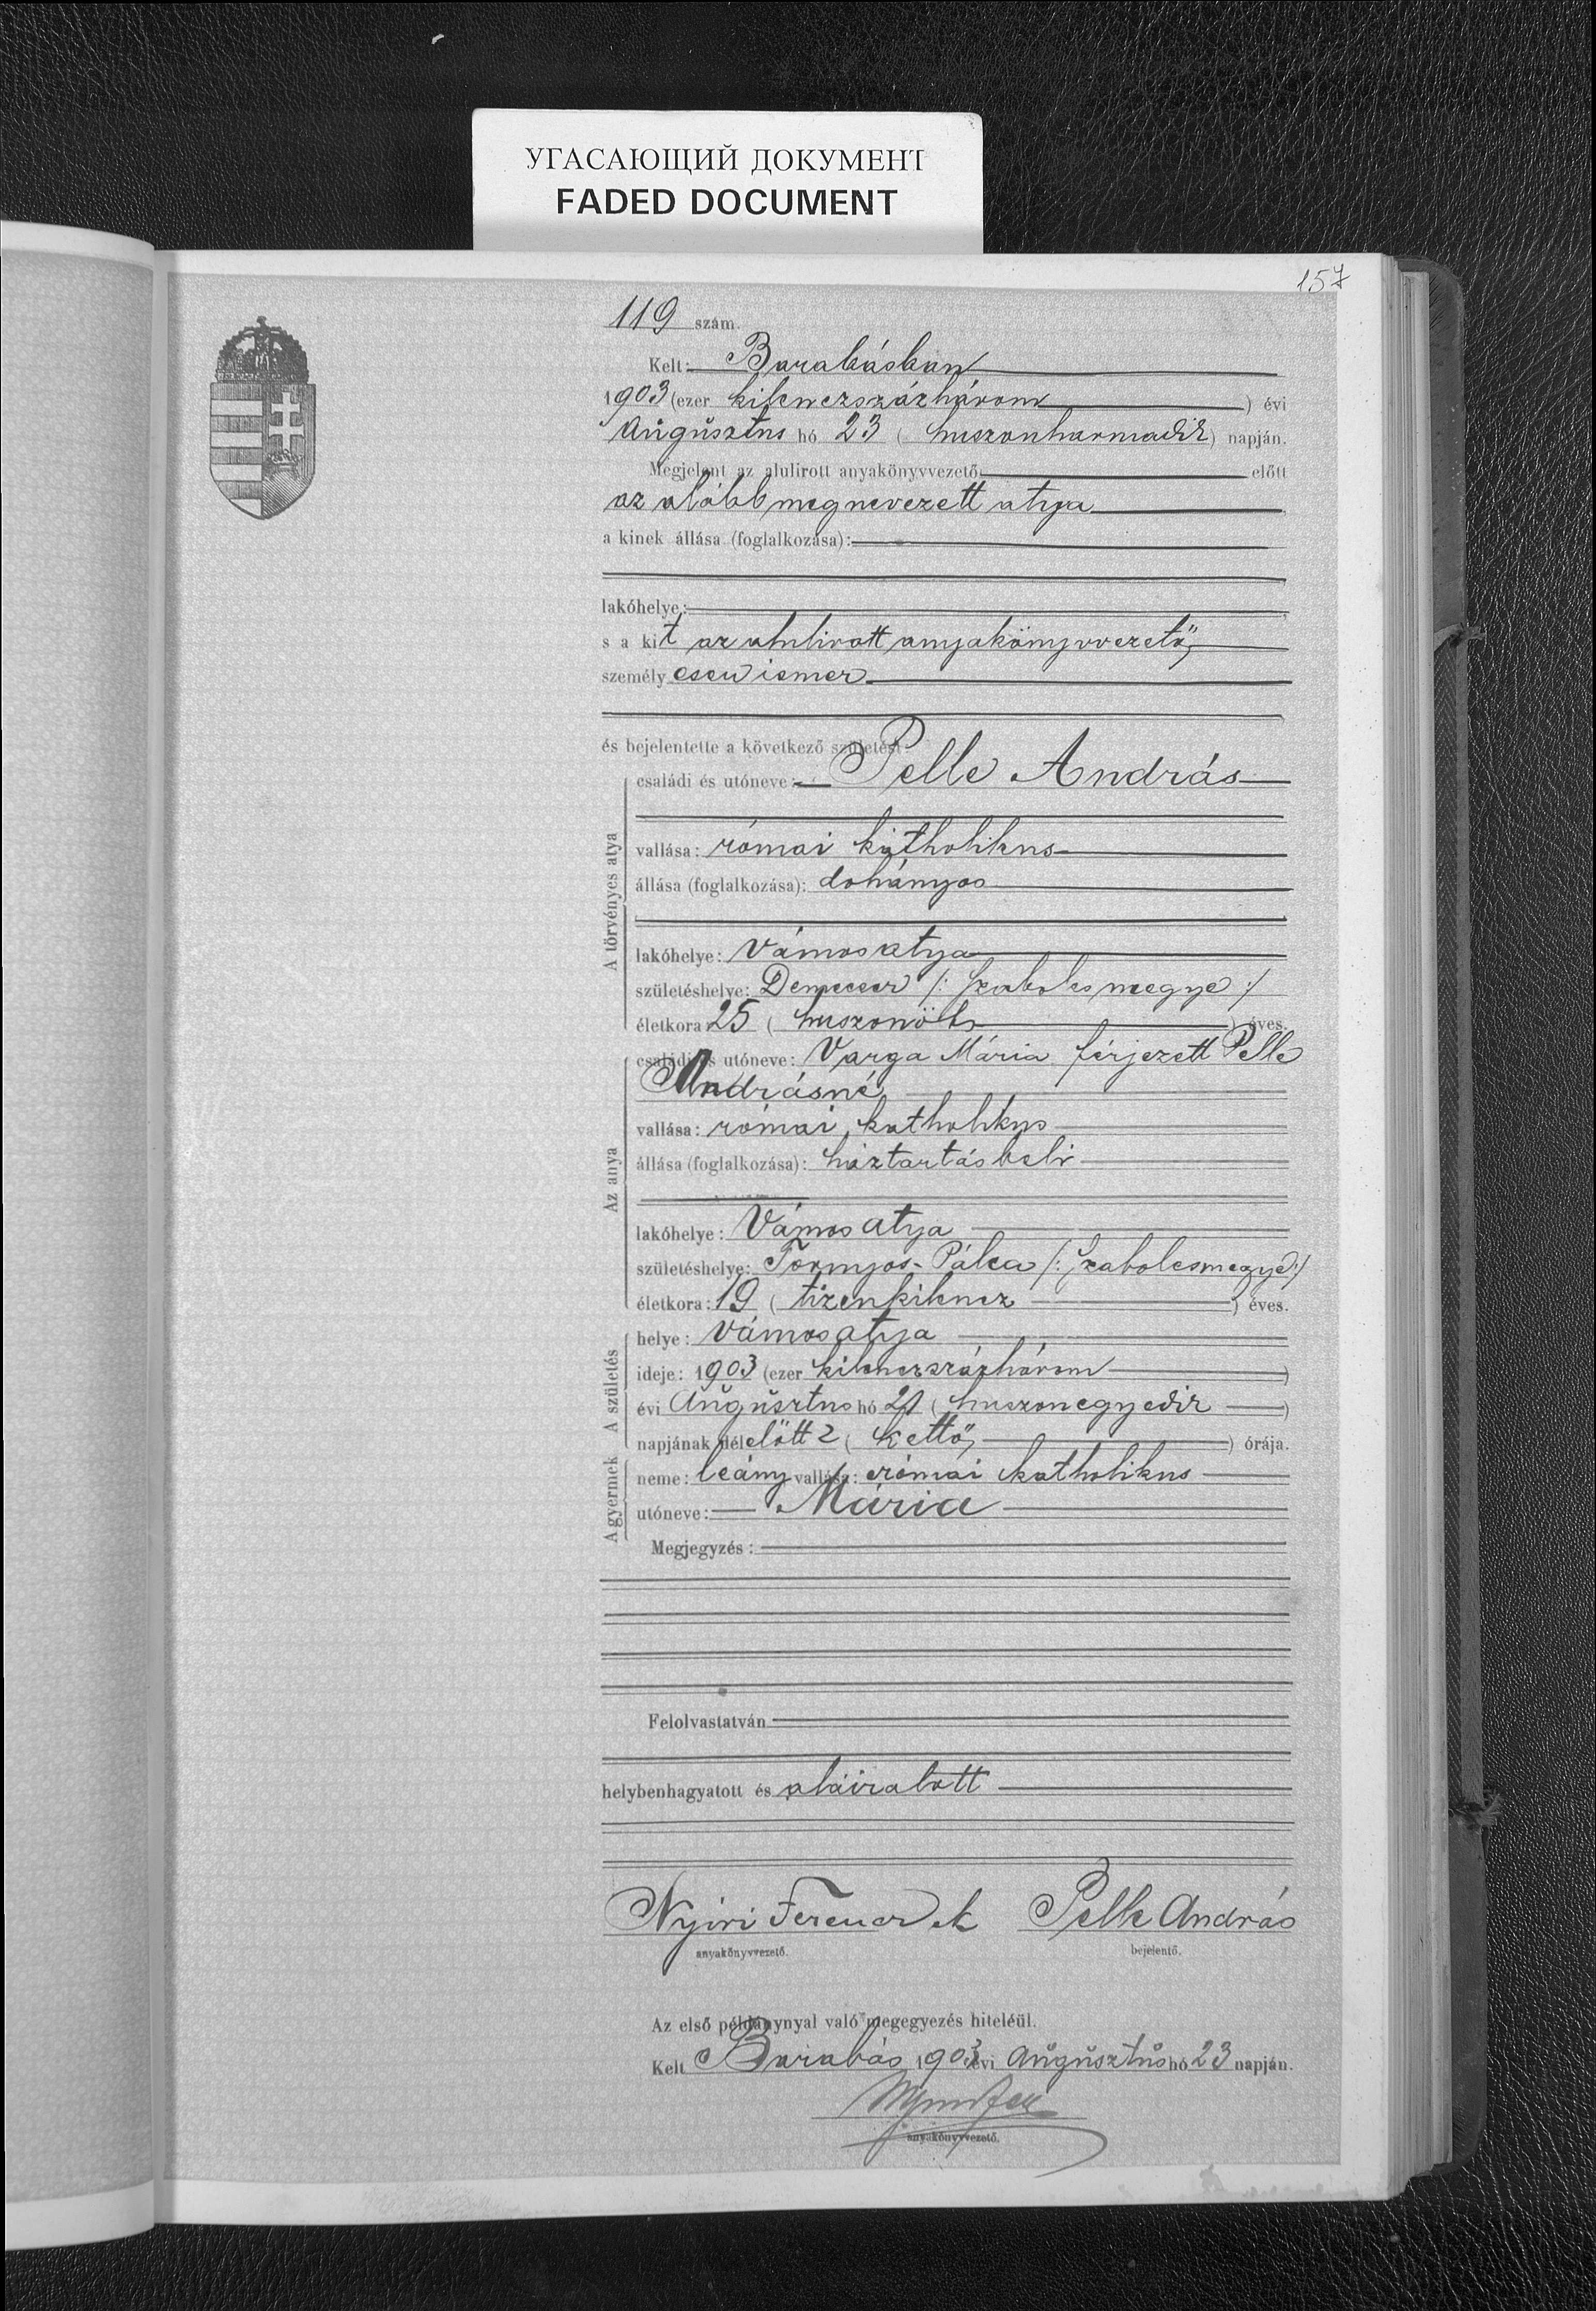 УГАСАЮЩИЙ ДОКУМЕНТ
FADED DOCUMENT
157
119 szám.
Kelt: Barabásban
1903 (ezer kilenczszázhárom) évi
Augusztus hó 23 (huszonharmadik) napján.
Megjelent az alulirott anyakönyvvezető előtt
az alább megnevezett atya
a kinek állása (foglalkozása):
lakóhelye:
s a kit az alulirott anyakönyvvezető
személyesen ismer
és bejelentette a következő születést:
A törvényes atya
családi és utóneve: Pelle András
vallása: római katholikus
állása (foglalkozása): dohányos
lakóhelye: Vámosatya
születéshelye: Demecser /: Szabolcsmegye :/
életkora: 25 (huszonöt) éves.
Az anya
családi és utóneve: Varga Mária férjezett Pelle
Andrásné
vallása: római katholikus
állása (foglalkozása): háztartásbeli
lakóhelye: Vámosatya
születéshelye: Tornyos-Pálca /: Szabolcsmegye :/
életkora: 19 (tizenkilencz) éves.
A születés
helye: Vámosatya
ideje: 1903 (ezer kilenczszázhárom)
évi Augusztus hó 21 (huszonegyedik)
napjának délelőtt 2 (kettő) órája.
A gyermek
neme: leány vallása: római katholikus
utóneve: Mária
Megjegyzés:
Felolvastatván
helybenhagyatott és aláiratott
Nyiri Ferencz Pelle András
anyakönyvvezető. bejelentő.
Az első példánynyal való megegyezés hiteléül.
Kelt Barabás 1903 évi Augusztus hó 23 napján.
anyakönyvvezető.